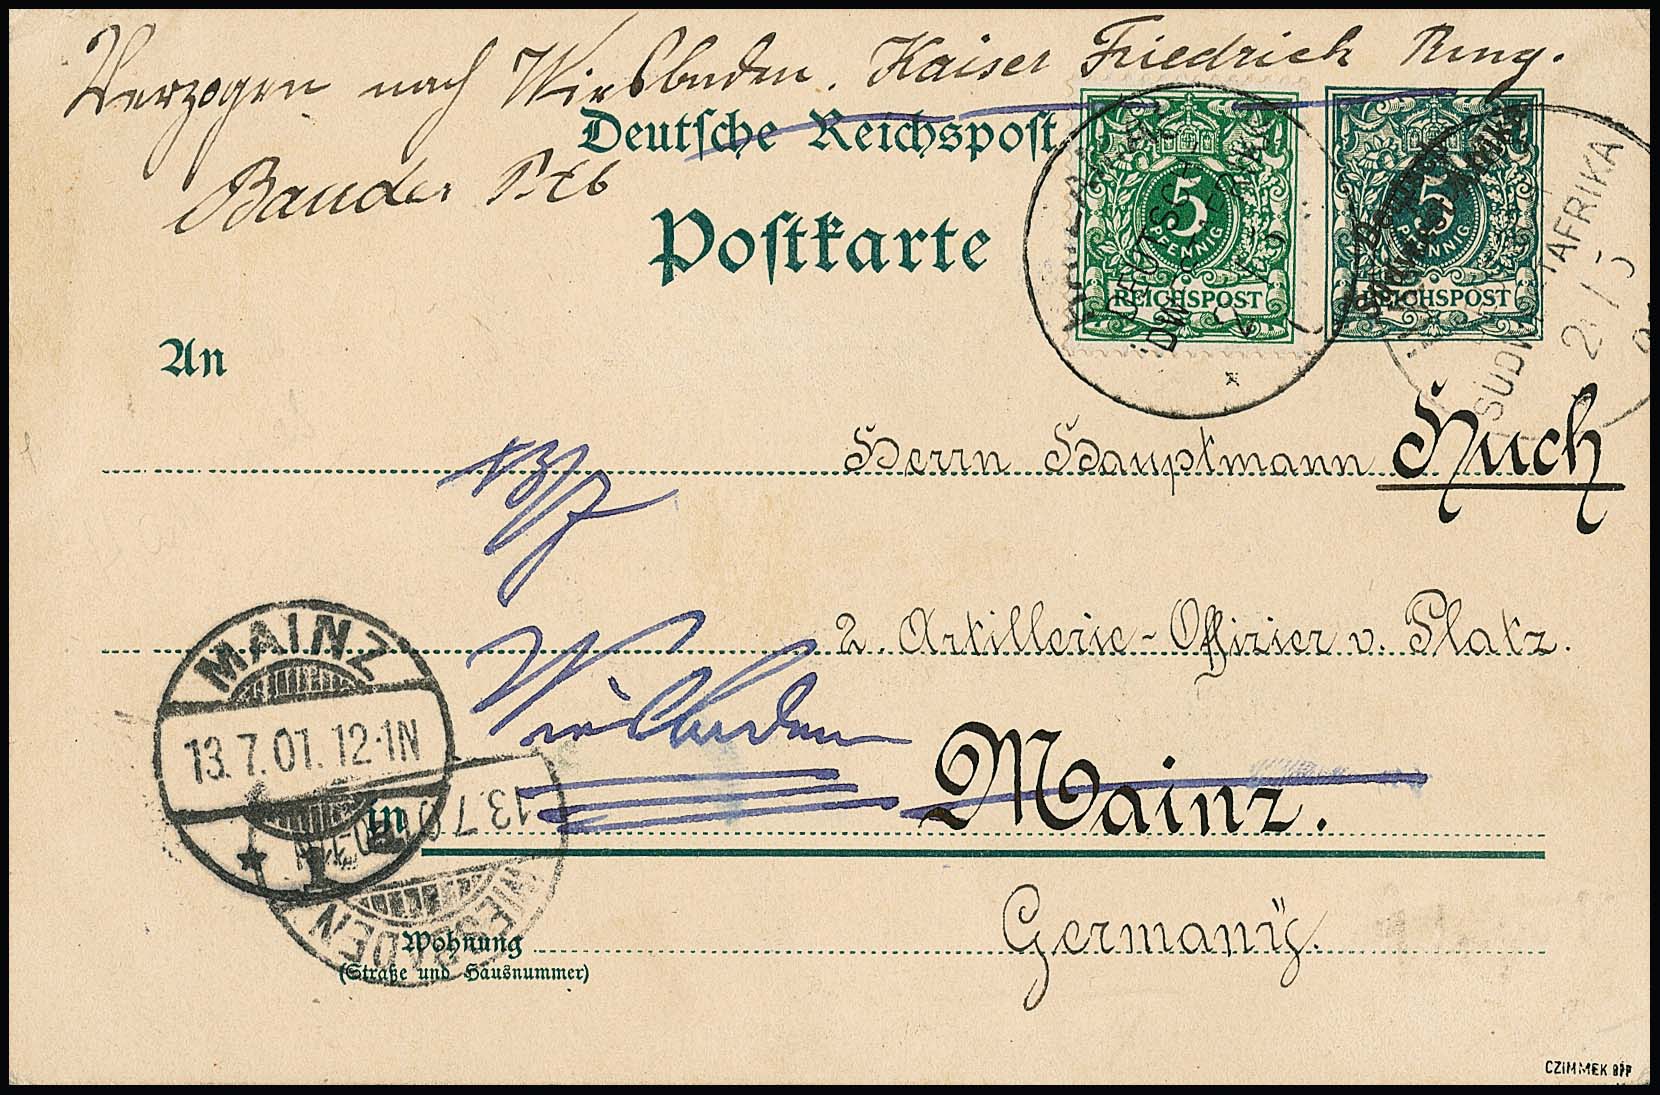 Verzogen nach Wiesbaden. Kaiser Friedrich Ring.
Deutsche Reichspost
Bauder
Postkarte
5
PFENNIG
REICHSPOST
5
PFENNIG
REICHSPOST
Deutsch-
Südwest-Afrika
DEUTSCH
SÜDWESTAFRIKA
SÜDWESTAFRIKA
An
Herrn Hauptmann Huch
2. Artillerie-Offizier v. Platz.
Wiesbaden
in Mainz.
Germany.
MAINZ
13.7.01. 12-1N
1
WIESBADEN
13.7.01
Wohnung
(Straße und Hausnummer)
CZIMMEK BPP